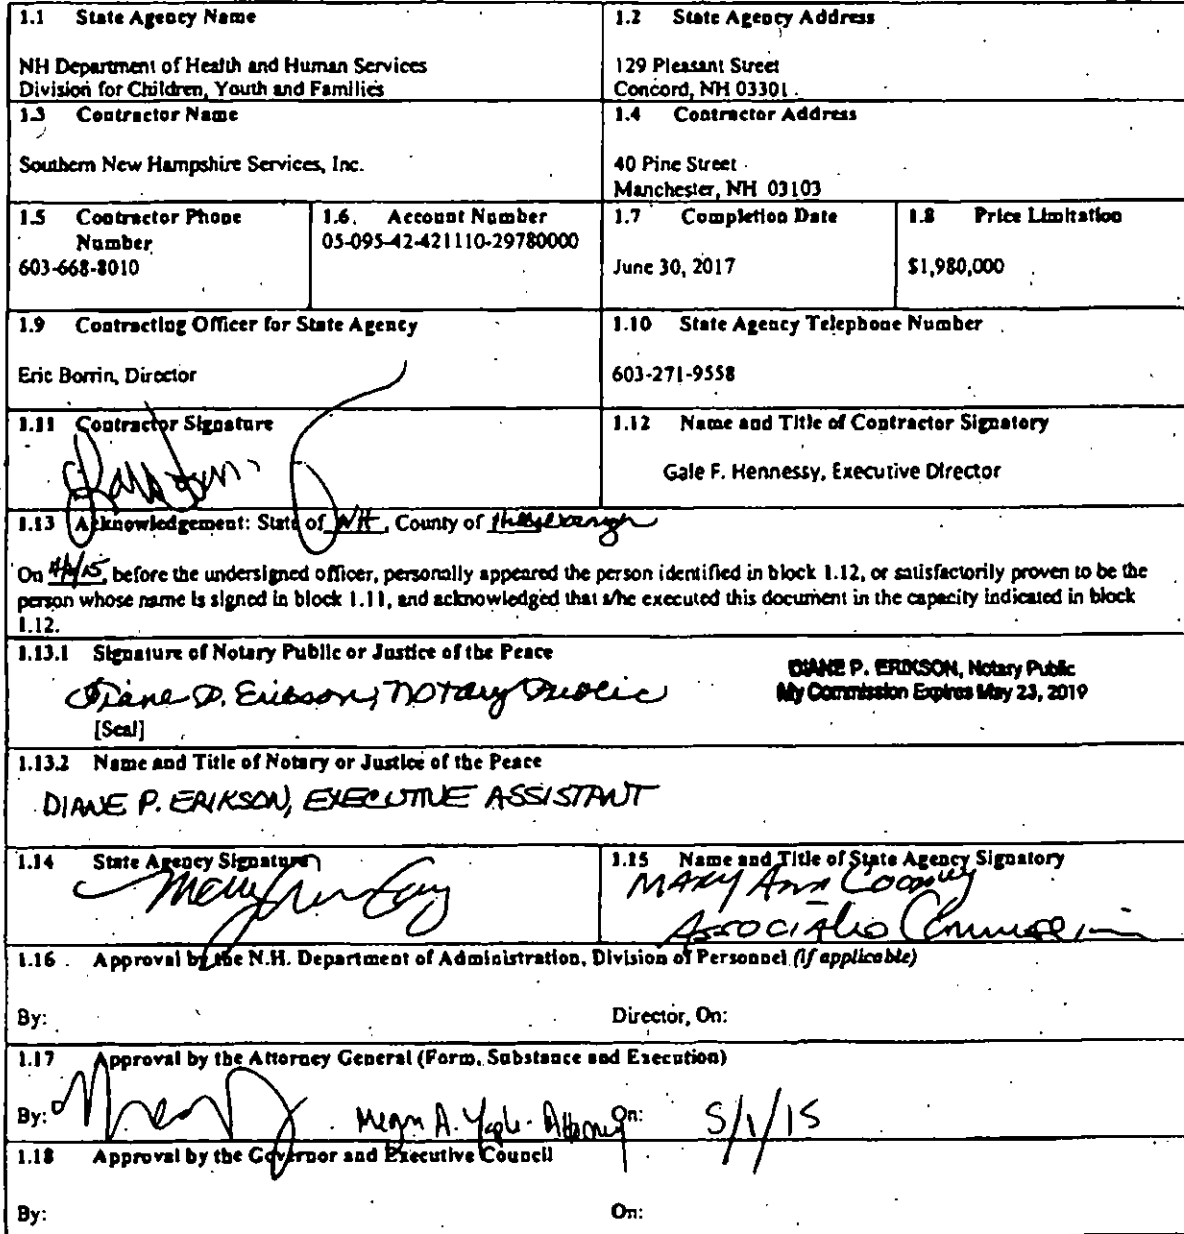 1.1 State Agency Name
NH Department of Health and Human Services
Division for Children, Youth and Families
1.2 State Agency Address
129 Pleasant Street
Concord, NH 03301
1.3 Contractor Name
Southern New Hampshire Services, Inc.
1.4 Contractor Address
40 Pine Street
Manchester, NH 03103
1.5 Contractor Phone
Number
603-668-8010
1.6. Account Number
05-095-42-421110-29780000
1.7 Completion Date
June 30, 2017
1.8 Price Limitation
$1,980,000
1.9 Contracting Officer for State Agency
Eric Borrin, Director
1.10 State Agency Telephone Number
603-271-9558
1.11 Contractor Signature
1.12 Name and Title of Contractor Signatory
Gale F. Hennessy, Executive Director
1.13 Acknowledgement: State of NH, County of Hillsborough
On /15, before the undersigned officer, personally appeared the person identified in block 1.12, or satisfactorily proven to be the
person whose name is signed in block 1.11, and acknowledged that s/he executed this document in the capacity indicated in block
1.12.
1.13.1 Signature of Notary Public or Justice of the Peace
Diane P. Erikson, Notary Public
DIANE P. ERIKSON, Notary Public
My Commission Expires May 23, 2019
[Seal]
1.13.2 Name and Title of Notary or Justice of the Peace
DIANE P. ERIKSON, EXECUTIVE ASSISTANT
1.14 State Agency Signature
1.15 Name and Title of State Agency Signatory
Mary Ann Cooney
Associate Commissioner
1.16 Approval by the N.H. Department of Administration, Division of Personnel (if applicable)
By:
Director, On:
1.17 Approval by the Attorney General (Form, Substance and Execution)
By: Megan A. Yaple - Attorney On: 5/1/15
1.18 Approval by the Governor and Executive Council
By:
On: